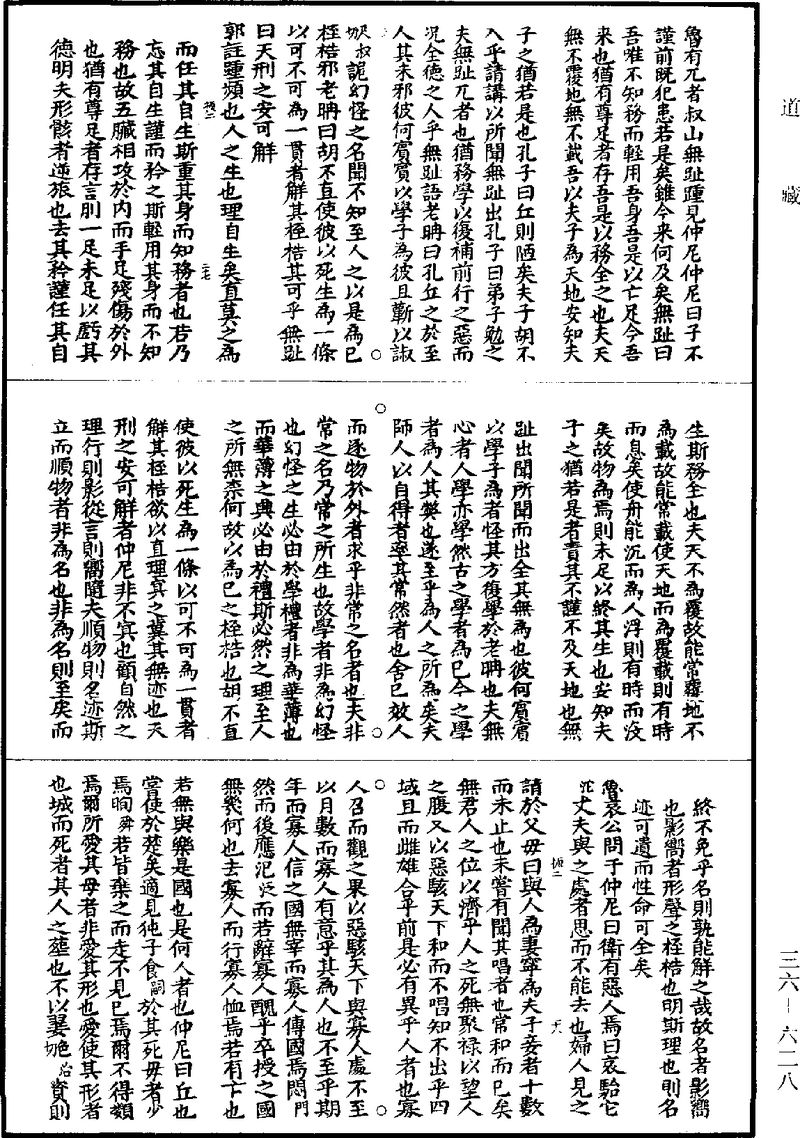 道藏
魯有兀者叔山無趾踵見仲尼仲尼曰子不
謹前既犯患若是矣雖今来何及矣無趾曰
吾唯不知務而輕用吾身吾是以亡足今吾
来也猶有尊足者存吾是以務全之也夫天
無不覆地無不載吾以夫子為天地安知夫
子之猶若是也孔子曰丘則陋矣夫子胡不
入乎請講以所聞無趾出孔子曰弟子勉之
夫無趾兀者也猶務學以復補前行之惡而
況全德之人乎無趾語老聃曰孔丘之於至
人其未邪彼何賓賓以學子為彼且蘄以諔
詭幻怪之名聞不知至人之以是為已
桎梏邪老聃曰胡不直使彼以死生為一條
以可不可為一貫者解其桎梏其可乎無趾
曰天刑之安可解
郭註踵頻也人之生也理自生矣直莫之為
而任其自生斯重其身而知務者也若乃
忘其自生謹而矜之斯輕用其身而不知
務也故五臟相攻於内而手足殘傷於外
也猶有尊足者存言刖一足未足以虧其
德明夫形骸者逆旅也去其矜謹任其自
生斯務全也夫天不為覆故能常覆地不
為載故能常載使天地而為覆載則有時
而息矣使舟能沉而為人浮則有時而沒
矣故物為焉則未足以終其生也安知夫
子之猶若是者責其不謹不及天地也無
趾出聞所聞而出全其無為也彼何賓賓
以學子為者怪其方復學於老聃也夫無
心者人學亦學然古之學者為已今之學
者為人其弊也遂至乎為人之所為矣夫
師人以自得者率其常然者也舍已效人
而逐物於外者求乎非常之名者也夫非
常之名乃常之所生也故學者非為幻怪
也幻怪之生必由於學禮者非為華薄也
而華薄之興必由於禮斯必然之理至人
之所無柰何故以為已之桎梏也胡不直
使彼以死生為一條以可不可為一貫者
解其桎梏欲以直理冥之冀其無迹也天
刑之安可解者仲尼非不冥也顧自然之
理行則影從言則嚮隨夫順物則名迹斯
立而順物者非為名也非為名則至矣而
終不免乎名則孰能解之哉故名者影嚮
也影嚮者形聲之桎梏也明斯理也則名
迹可遺而性命可全矣
魯哀公問于仲尼曰衛有惡人焉曰哀駘它
丈夫與之處者思而不能去也婦人見之
請於父母曰與人為妻寧為夫子妾者十數
而未止也未嘗有聞其唱者也常和而已矣
無君人之位以濟乎人之死無聚禄以望人
之腹又以惡駭天下和而不唱知不出乎四
域且而雌雄合乎前是必有異乎人者也寡
人召而觀之果以惡駭天下與寡人處不至
以月數而寡人有意乎其為人也不至乎期
年而寡人信之國無宰而寡人傳國焉悶門
然而後應氾泛而若辭寡人醜乎卒授之國
無幾何也去寡人而行寡人恤焉若有亡也
若無與樂是國也是何人者也仲尼曰丘也
嘗使於楚矣適見㹠子食飼於其死母者少
焉眴舜若皆棄之而走不見已焉爾不得類
焉爾所愛其母者非愛其形也愛使其形者
也戰而死者其人之塟也不以翣資則
三六-六二八